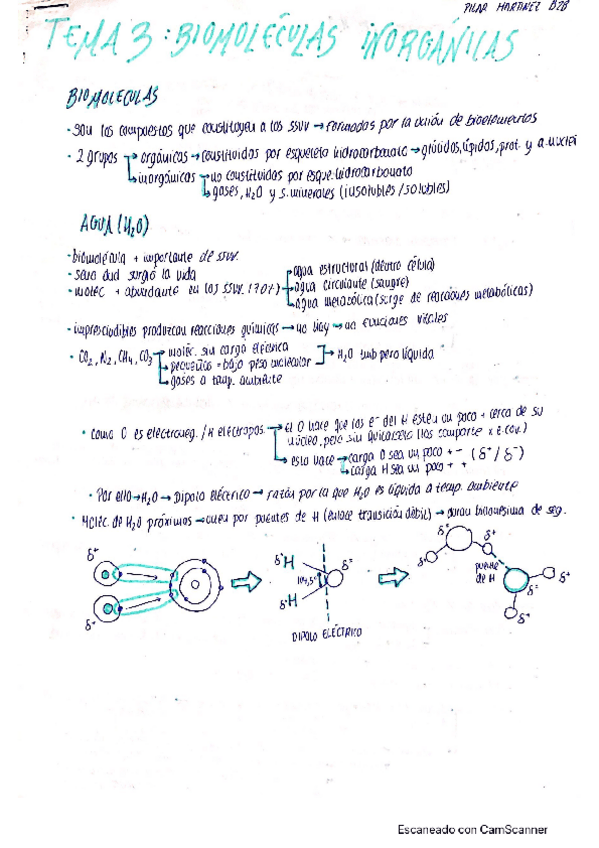 PILAR MARTINEZ B2B
TEMA 3: BIOMOLÉCULAS INORGÁNICAS
BIOMOLECULAS
· son los compuestos que constituyen a los SSVV → formados por la unión de bioelementos
· 2 grupos → orgánicas → constituidas por esqueleto hidrocarbonato → glúcidos, lípidos, prot. y a. nuclei
→ inorgánicas → no constituidas por esque. hidrocarbonato
→ gases, H2O y s. minerales (insolubles / solubles)
AGUA (H2O)
- biomolécula + importante de SSVV.
- seno dnd surgió la vida
- moléc + abundante en los SSVV (70%) → agua estructural (dentro célula)
→ agua circulante (sangre)
→ agua metabólica (surge de reacciones metabólicas)
· imprescindibles produzcan reacciones químicas → no hay → no funciones vitales
· CO2, N2, CH4, CO3 → moléc. sin carga eléctrica
→ pequeños = bajo peso molecular → H2O tmb pero líquida
→ gases a temp. ambiente
· como O es electroneg. / H electropos. → El O hace que los e⁻ del H estén un poco + cerca de su
núcleo, pero sin quitárselo (los comparte x E.cov.)
→ esto hace → carga O sea un poco + - (δ⁺/δ⁻)
→ carga H sea un poco + +
· Por ello → H2O → Dipolo eléctrico → razón por la que H2O es líquida a temp. ambiente
· Moléc. de H2O próximas → unen por puentes de H (enlace transición débil) → duran billonésima de seg.
δ⁺ δ⁺
δ⁺H 104,5° δ⁻
δ⁺H
DIPOLO ELÉCTRICO
δ⁻ δ⁺ δ⁺
puente
de H
δ⁻ δ⁺ δ⁺
Escaneado con CamScanner